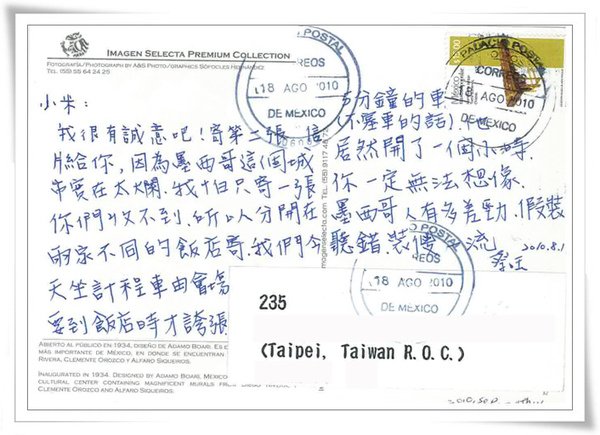 IMAGEN SELECTA PREMIUM COLLECTION
FOTOGRAFÍA/PHOTOGRAPH BY A&S PHOTO/GRAPHICS SÓFOCLES HERNÁNDEZ
TEL. (55) 55 64 24 25
小米：
我很有誠意吧！寄第二張
片給你，因為墨西哥這個城
市實在太爛，我怕只寄一張
你們收不到，所以分開在
兩家不同的飯店寄。我們今
天坐計程車由會場
要到飯店時才誇張
5分鐘的車
(不塞車的話)，他
居然開了一個小時，
你一定無法想像，
墨西哥人有多差勁，假裝
聽錯、裝傻一流
2010.8.1
POSTAL
18 AGO 2010
DE MEXICO
PALACIO POSTAL
CORREOS
18 AGO 2010
DE MEXICO
POSTAL
18 AGO 2010
DE MEXICO
235
(Taipei, Taiwan R.O.C.)
ABIERTO AL PÚBLICO EN 1934, DISEÑO DE ADAMO BOARI, ES
MÁS IMPORTANTE DE MÉXICO, EN DONDE SE ENCUENTRAN
RIVERA, CLEMENTE OROZCO Y ALFARO SIQUEIROS.
INAUGURATED IN 1934. DESIGNED BY ADAMO BOARI, MEXICO
CULTURAL CENTER CONTAINING MAGNIFICENT MURALS
CLEMENTE OROZCO AND ALFARO SIQUEIROS.